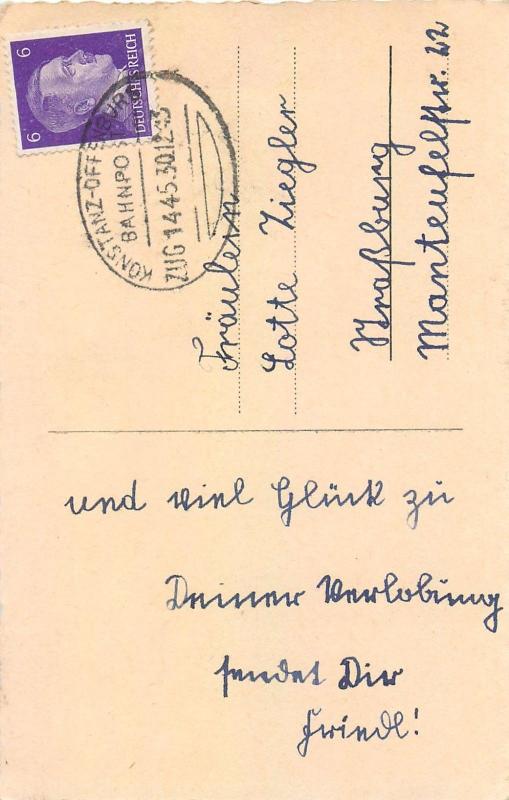 6 6
DEUTSCHES REICH
KONSTANZ-OFFENBURG
BAHNPOST
ZUG 1445.30.12.43
Fräulein
Lotte Ziegler
Straßburg
Manteufelstr. 22
und viel Glück zu
Deiner Verlobung
sendet Dir
Friedl!